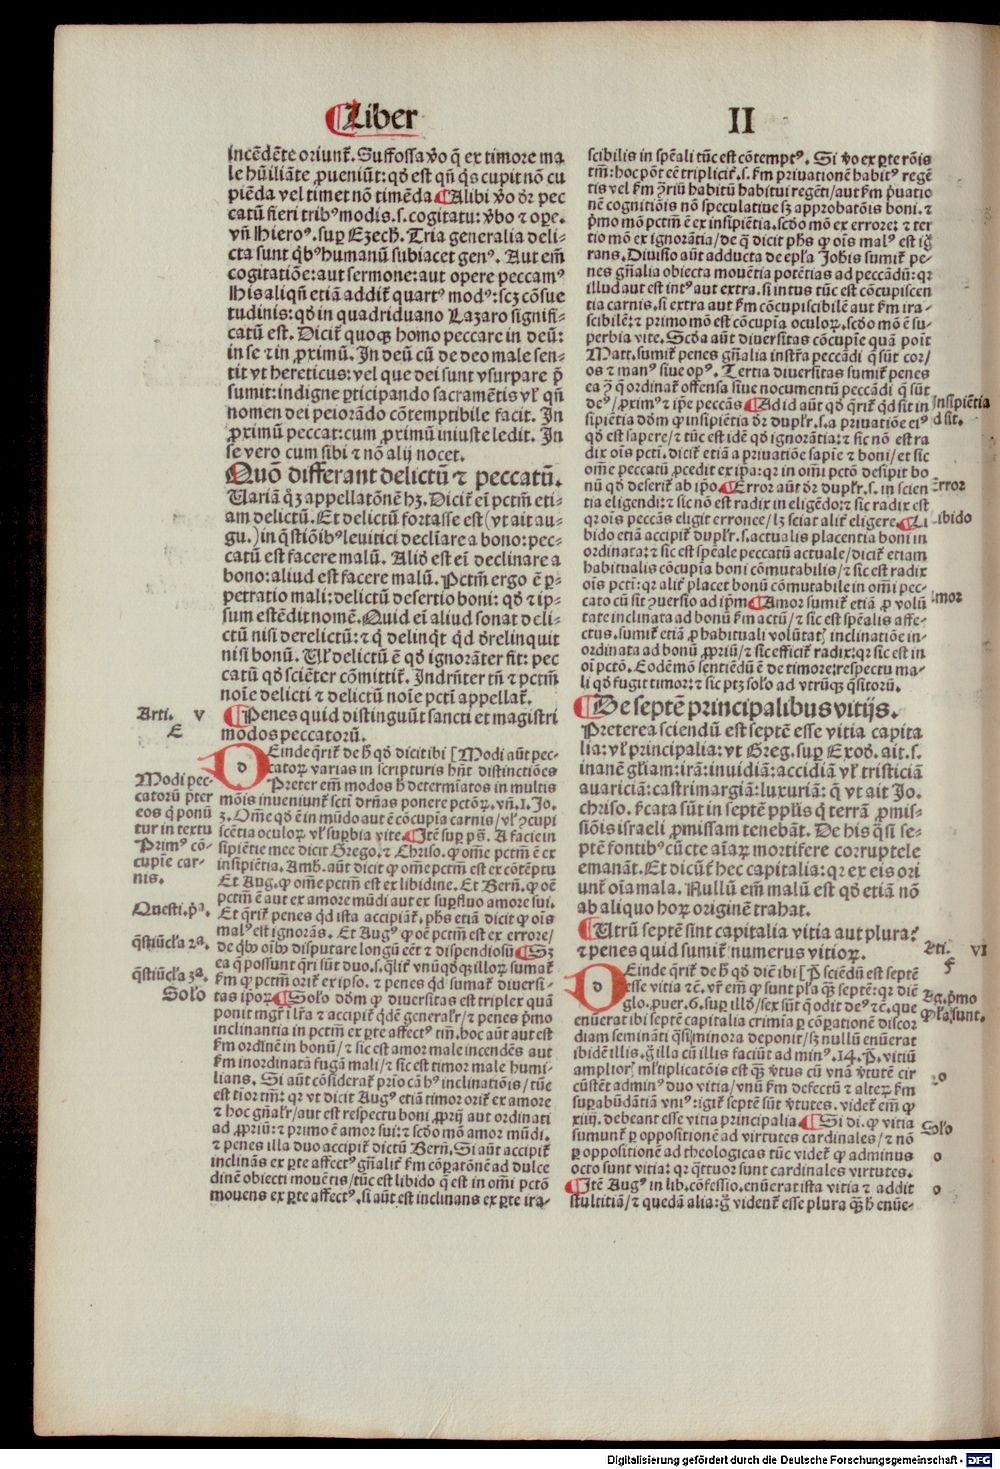 Liber
II
incēdēte oriunt̄. Suffossa v̄o q̄ ex timore ma
le hūiliāte ꝓueniūt: qd̄ est qn̄ q̄s cupit nō cu
piēda vel timet nō timēda ¶Alibi v̄o dr̄ pec
catū fieri tribꝰ modis.s.cogitatu: v̄bo ⁊ oꝑe.
vn̄ Hieroꝰ. suꝑ Ezech̄. Tria generalia deli⸗
cta sunt q̄bꝰ humanū subiacet genꝰ. Aut em̄
cogitatiōe: aut sermone: aut opere peccamꝰ
His aliqn̄ etiā addit̄ quartꝰ modꝰ: scꝫ cōsue
tudinis: qd̄ in quadriduano Lazaro signifi⸗
catū est. Dicit̄ quoqꝫ homo peccare in deū:
in se ⁊ in ꝓximū. In deū cū de deo male sen⸗
tit vt hereticus: vel que dei sunt vsurpare p̄
sumit: indigne ꝑticipando sacramētis vl̄ qn̄
nomen dei peiorādo cōtemptibile facit. In
ꝓximū peccat: cum ꝓximū iniuste ledit. In
se vero cum sibi ⁊ nō alij nocet.
Quō differant delictū ⁊ peccatū.
Uariā q̄ꝫ appellatōnē hꝫ. Dicit̄ ei̇ pctm̄ eti⸗
am delictū. Et delictū fortasse est (vt ait au⸗
gu.) in q̄stiōibꝰ leuitici declīare a bono: pec⸗
catū est facere malū. Aliō est ei̇ declinare a
bono: aliud est facere malū. Pctm̄ ergo ē ꝑ⸗
petratio mali: delictū desertio boni: qd̄ ⁊ ip⸗
sum estēdit nomē. Quid ei̇ aliud sonat deli⸗
ctū nisi derelictū: ⁊ q̄ delinq̄t q̄d d̄relinquit
nisi bonū. Ul̄ delictū ē qd̄ ignorāter fit: pec
catū qd̄ sciēter cōmittit̄. Indrn̄ter tn̄ ⁊ pctm̄
noīe delicti ⁊ delictū noīe pcti appellat̄.
Arti. v
E
¶Penes quid distinguūt sancti et magistri
modos peccatorū.
Deinde q̄rit̄ de h̄ qd̄ dicit ibi [Modi aūt pec⸗
catoꝝ varias in scripturis hn̄t distinctiōes
Preter em̄ modos h̄ determiatos in multis
mōis inueniunt̄ scti drn̄as ponere pctōꝝ. vn̄.1. Jo.
3. Om̄e qd̄ ē in mūdo aut ē cōcupia carnis/ vl̄ ꝯcupi
scētia oculoꝝ vl̄ suꝑbia vite. ¶Itē suꝑ ps̄. A facie in
sipiētie mee dicit Grego. ⁊ Chriso. ꝙ om̄e pctm̄ ē ex
insipiētia. Amb. aūt dicit ꝙ om̄e pctm̄ est ex cōtēptu
Et Aug. ꝙ ome pctm̄ est ex libidine. Et Bern̄. ꝙ oē
pctm̄ ē aut ex amore mūdi aut ex suꝑfluo amore sui.
Et q̄rit̄ penes q̄d ista accipiāt̄. phs̄ etiā dicit ꝙ oīs
malꝰ est ignorās. Et Augꝰ ꝙ oē pctm̄ est ex errore/
de qb̄ꝰ oīb̄ꝰ disputare longū eēt ⁊ dispendiosū ¶Sꝫ
ea q̄ possunt q̄ri sūt duo.s.q̄lit̄ vnūqd̄qꝫ illoꝝ sumat̄
ẜm ꝙ pctm̄ orit̄ ex ipso. ⁊ penes q̄d sumat̄ diuersi⸗
tas ipoꝝ ¶Solo dōm ꝙ diuersitas est triplex quā
ponit mgr̄ i l̄ra ⁊ accipit̄ q̄dē general̄r/ ⁊ penes p̄mo
inclinantia in pctm̄ ex ꝑte affectꝰ tm̄. hoc aūt aut est
ẜm ordinē in bonū/ ⁊ sic est amor male incendēs aut
ẜm inordinatā fugā mali/ ⁊ sic est timor male humi⸗
lians. Si aūt cōsiderat̄ prīo cā hꝰ inclinatiōis/ tūc
est tīor tm̄: qꝛ vt dicit Augꝰ etiā timor orit̄ ex amore
⁊ hoc gn̄al̄r/ aut est respectu boni ꝓprij aut ordinati
ad ꝓpriū: ⁊ primo ē amor sui: ⁊ scdo mō amor mūdi.
⁊ penes illa duo accipit̄ dictū Bern̄. Si aūt accipit̄
inclināns ex ꝑte affectꝰ gn̄alit̄ ẜm cōꝑatōnē ad dulce
dinē obiecti mouētis/ tūc est libido q̄ est in om̄i pctō
mouens ex ꝑte affectꝰ. si aūt est inclinans ex ꝑte ira⸗
Modi pec⸗
catorū p̄ter
eos q̄ ponū
tur in textu
Primꝰ cō⸗
cupie car⸗
nis.
Questi. p̄ᵃ.
q̄stiūcl̄a 2ᵃ.
q̄stiūcl̄a 3ᵃ.
Sol̄o
scibilis in sp̄eali tūc est cōtemptꝰ. Si v̄o ex ꝑte rōis
tm̄: hoc pōt eē triplicit̄.s. ẜm priuationē habitꝰ regē
tis vel ẜm ꝯriū habitū habitui regēti/ aut ẜm p̄uatio
nē cognitiōis nō speculatiue sꝫ approbatōis boni. ⁊
p̄mo mō pctm̄ ē ex insipiētia. scdo mō ex errore: ⁊ ter
tio mō ex ignorātia/ de q̄ dicit phs̄ ꝙ oīs malꝰ est ig̅
rans. Diuisio aūt adducta de epl̄a Joh̄is sumit̄ pe⸗
nes gn̄alia obiecta mouētia potētias ad peccādū: qꝛ
illud aut est intꝰ aut extra. si intus tūc est cōcupiscen
tia carnis. si extra aut ẜm cōcupiscibilē aut ẜm ira⸗
scibilē: ⁊ primo mō est cōcupia oculoꝝ. scdo mō ē su⸗
perbia vite. Scda aūt diuersitas cōcupie quā poīt
Matt. sumit̄ penes gn̄alia instr̄a peccādi q̄ sūt cor/
os ⁊ manꝰ siue opꝰ. Tertia diuersitas sumit̄ penes
ea ꝯ q̄ ordinat̄ offensa siue nocumentū peccādi q̄ sūt
deꝰ/ ꝓximꝰ ⁊ ip̄e peccās ¶Ad id aūt qd̄ q̄rit̄ q̄d sit in
sipiētia dōm ꝙ insipiētia dr̄ dupl̄r.s.a priuatiōe eiꝰ
qd̄ est sapere/ ⁊ tūc est idē qd̄ ignorātia: ⁊ sic nō est ra
dix oīs pcti. dicit̄ etiā a priuatiōe sapie ⁊ boni/ et sic
om̄e peccatū ꝓcedit ex ipa: qꝛ in om̄i pctō desipit bo
nū qd̄ deserit̄ ab ip̄o. ¶Error aūt dr̄ dupl̄r.s. in scien
tia eligendi: ⁊ sic nō est radix in eligēdo: ⁊ sic radix est
qꝛ oīs peccās eligit erronee/ lꝫ sciat alit̄ eligere. ¶Li
bido etiā accipit̄ dupl̄r.s.actualis placentia boni in
ordinata: ⁊ sic est sp̄eale peccatū actuale/ dicit̄ etiam
habitualis cōcupia boni cōmutabilis/ ⁊ sic est radix
oīs pcti: qꝛ alit̄ placet bonū cōmutabile in om̄i pec⸗
cato cū sit ꝯuersio ad ip̄m ¶Amor sumit̄ etiā ꝓ volū
tate inclinata ad bonū ẜm actū/ ⁊ sic est sp̄ealis affe⸗
ctus. sumit̄ etiā ꝓ habituali volūtatꝭ inclinatiōe in⸗
ordinata ad bonū ꝓpriū/ ⁊ sic efficit̄ radix: qꝛ sic est in
oī pctō. Eodē mō sentiēdū ē de timore: respectu ma⸗
li qd̄ fugit timor: ⁊ sic ptꝫ sol̄o ad vtrūqꝫ q̄sitorū.
¶De septē principalibus vitijs.
Preterea sciendū est septē esse vitia capita
lia: vl̄ principalia: vt Greg. suꝑ Exod̄. ait.s.
inanē gl̄iam: irā: inuidiā: accidiā vl̄ tristiciā
auariciā: castrimargiā: luxuriā: q̄ vt ait Jo.
chriso. ẜcata sūt in septē ppl̄is q̄ terrā ꝓmis⸗
siōis israeli ꝓmissam tenebāt. De his q̄si se⸗
ptē fontibꝰ cūcte aīaꝝ mortifere corruptele
emanāt. Et dicūt̄ hec capitalia: qꝛ ex eis ori
unt̄ oīa mala. Nullū em̄ malū est qd̄ etiā nō
ab aliquo hoꝝ originē trahat.
¶Utrū septē sint capitalia vitia aut plura:
⁊ penes quid sumit̄ numerus vitioꝝ.
Deinde q̄rit̄ de h̄ qd̄ diē ibi [P̄ sciēdū est septē
esse vitia ⁊ē. vr̄ em̄ ꝙ sunt pl̄a q̄ꝫ septē: qꝛ diē
glo. ꝓuer.6. suꝑ illd̄/ sex sūt q̄ odit deꝰ ⁊ē. que
enūerat ibi septē capitalia crimīa ꝑ cōꝑationē discor
diam seminati q̄si minora deponit/ sꝫ nullū enūerat
ibidē illis. g̊ illa cū illis faciūt ad minꝰ.14. P̄. vitiū
amplioꝛꝭ ml̄tiplicatōis est q̄ꝫ v̄tus cū vnā v̄tutē cir
cūstēt admīꝰ duo vitia/ vnū ẜm defectū ⁊ alteꝝ ẜm
suꝑabūdātiā vniꝰ: igit̄ septē sūt v̄tutes. videt̄ em̄ ꝙ
xiiij. debeant esse vitia principalia. ¶Si di. ꝙ vitia
sumunt̄ ꝑ oppositionē ad virtutes cardinales/ ⁊ nō
ꝑ oppositionē ad theologicas tūc videt̄ ꝙ adminus
octo sunt vitia: qꝛ q̄ttuor sunt cardinales virtutes.
¶Itē Augꝰ in lib. cōfessio. enūerat ista vitia ⁊ addit
stultitiā/ ⁊ quedā alia: g̊ vident̄ esse plura q̄ꝫ h̄ enūe⸗
Insipiētia
q̄d sit.
Error
Libido
Amor
Arti. VI
F
Ar̄g. p̄mo
ꝙ pl̄a sunt.
2o
Sol̄o
o
o
Digitalisierung gefördert durch die Deutsche Forschungsgemeinschaft - DFG